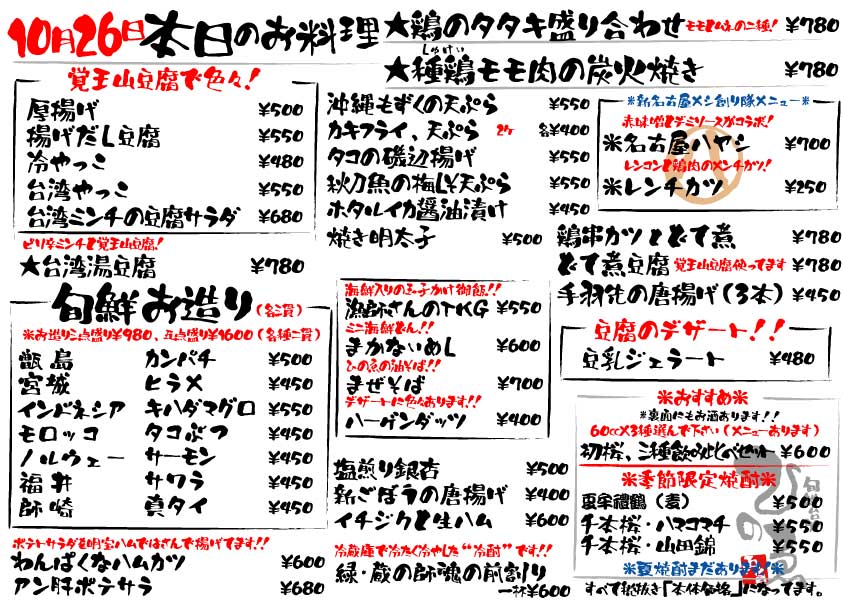 10月26日本日のお料理
★鶏のタタキ盛り合わせ モモとムネの二種! ¥780
★種鶏モモ肉の炭火焼き ¥780
覚王山豆腐で色々!
厚揚げ ¥500
揚げだし豆腐 ¥550
冷やっこ ¥480
台湾やっこ ¥550
台湾ミンチの豆腐サラダ ¥680
ピリ辛ミンチと覚王山豆腐!
★台湾湯豆腐 ¥780
旬鮮お造り(各二貫)
※お造り三点盛り¥980、五点盛り¥1600(各種一貫)
甑島 カンパチ ¥500
宮城 ヒラメ ¥450
インドネシア キハダマグロ ¥550
モロッコ タコぶつ ¥450
ノルウェー サーモン ¥450
福井 サワラ ¥450
師崎 真タイ ¥450
ポテトサラダを明宝ハムではさんで揚げてます!!
わんぱくなハムカツ ¥600
アン肝ポテサラ ¥680
沖縄もずくの天ぷら ¥550
カキフライ、天ぷら 2ケ 各¥400
タコの磯辺揚げ ¥550
秋刀魚の梅しそ天ぷら ¥550
ホタルイカ醤油漬け ¥450
焼き明太子 ¥500
海鮮入りの玉子かけ御飯!!
漁師さんのTKG ¥550
ミニ海鮮どん!!
まかないめし ¥600
ひの魚の油そば!!
まぜそば ¥700
デザートに色々あります!!
ハーゲンダッツ ¥400
塩煎り銀杏 ¥500
新ごぼうの唐揚げ ¥400
イチジクと生ハム ¥600
冷蔵庫で冷たく冷やした“冷酎”です!!
緑・蔵の師魂の前割り
一杯¥600
※新名古屋メシ創り隊メニュー※
赤味噌とデミソースがコラボ!
※名古屋ハヤシ ¥700
レンコンと鶏肉のメンチカツ!
※レンチカツ ¥250
鶏串カツとどて煮 ¥780
どて煮豆腐 覚王山豆腐使ってます ¥780
手羽先の唐揚げ(3本) ¥450
豆腐のデザート!!
豆乳ジェラート ¥480
※おすすめ※
※裏面にもお酒あります!!
60cc×3種選んで下さい(メニューあります)
初桜、三種飲み比べセット ¥600
※季節限定焼酎※
(麦) ¥500
千本桜・ハマコマチ ¥550
千本桜・山田錦 ¥550
※夏焼酎まだあります※
すべて税抜き「本体価格」になってます。